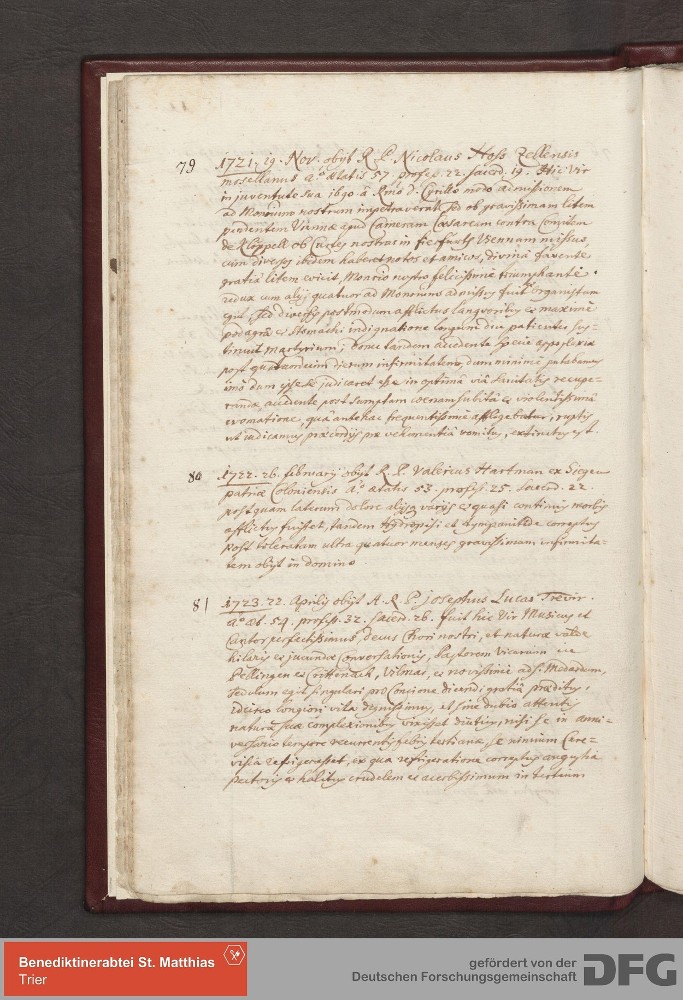 79 1721. 19. Nov. obijt R. P. Nicolaus Hoss Zellensis
mosellanus aº ætatis 57. profes. 22. sacerd. 19. Hic vir
in juventute sua ibgo à Rmo D. Cyrillo modo admissionem
ad Monrium nostrum impetraverat sed ob gravissimam litem
pendentem Viennæ apud Cameram Cæsaream contra Comitem
de Köppell ob Curtes nostras in Viennam missus,
cum diversos ibidem haberet notos et amicos, divinâ favente
gratiâ litem evicit, Monrio nostro felicissimè triumphante.
redux cum alijs quatuor ad Monrium admissus fuit organistam
egit, sed diversis postmodum afflictus languoribus et maximè
podagrâ et stomachi indignatione longum diu patienter sus-
tinuit martyrium; tandem accedente specie appoplexiæ
post quatuordecim dierum infirmitatem, dum minimè putabamus
imò dum ipse se judicaret esse in optimâ viâ sanitatis recupe-
randæ, accedente post sumptam coenam subitâ et violentissimâ
evomatione, quâ antehac frequentissimè affligebatur, ruptis
ut judicamus præcordijs præ vehementiâ vomitus, extinctus est.
80 1722. 26. februarij obijt R. P. Valerius Hartman ex Siegen
patriæ Coloniensis aº ætatis 53. profess. 25. sacerd. 22.
postquam laterum dolore alijsq varijs et quasi continuis morbis
afflictus fuisset, tandem Hydropisi et tympanitide correptus
post toleratam ultra quatuor menses gravissimam infirmita-
tem obijt in domino.
81 1723. 22. Aprilis obijt A. R. P. Josephus Lucas Trevir.
aº æt. 54. profess. 32. sacerd. 26. fuit hic vir Musicus et
Cantor perfectissimus, decus Chori nostri, et naturæ valde
hilaris et jucundæ Conversationis, Pastorem Vicarium in
Pellingen et Crittenach, Vilmar, et novissimè ad S. Medardum,
sedulum egit singulari pro Concione dicendi gratiâ præditus.
idcirco longiori vita dignissimus, et sine dubio attentis
naturæ suæ complexionibus vixisset diutius, nisi se in anni-
versario tempore recurrentis febris tertianæ, se nimium Cere-
visiâ refrigerasset, ex qua refrigeratione correptus angustiâ
pectoris et halitus crudelem et acerbissimum in tertium
Benediktinerabtei St. Matthias
Trier
gefördert von der
Deutschen Forschungsgemeinschaft DFG